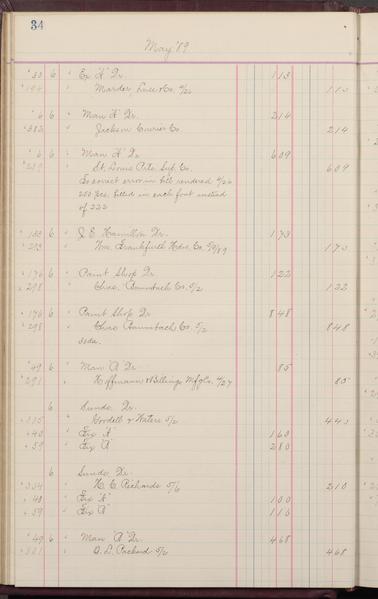 34
May '89
"33 6 " Ex "A" Dr. 113
" Marder, Luse & Co. 113
"6 6 " Man "A" Dr. 214
"382 " Jackson Courier Co 214
"6 6 " Man "A" Dr 609
" St. Louis Ptg. Sup. Co. 609
To correct error in bill rendered 4/26
200 pcs. billed in each font instead
of 222
6 " J. E. Hamilton Dr. 173
" Wm. Frankfurth Hdw. Co. 173
"176 6 " Paint Shop Dr. 122
"298 " Chas. Baumbach Co. 5/2 122
"176 6 " Paint Shop Dr 848
"298 " Chas Baumbach Co. 5/2 848
"49 6 " Man "A" Dr. 85
"291 " Hoffmann & Billings Mfg Co. 4/27 85
6 Sunds. Dr.
" Goodell & Waters 5/2 440
"40 " Ex "A" 160
"59 " Ex "A" 280
6 Sunds. Dr.
"334 " H. C. Richards 5/6 210
"40 " Ex "A" 100
"59 " Ex "A" 110
"49 6 " Man "A" Dr. 468
"321 " Packard 5/2 468